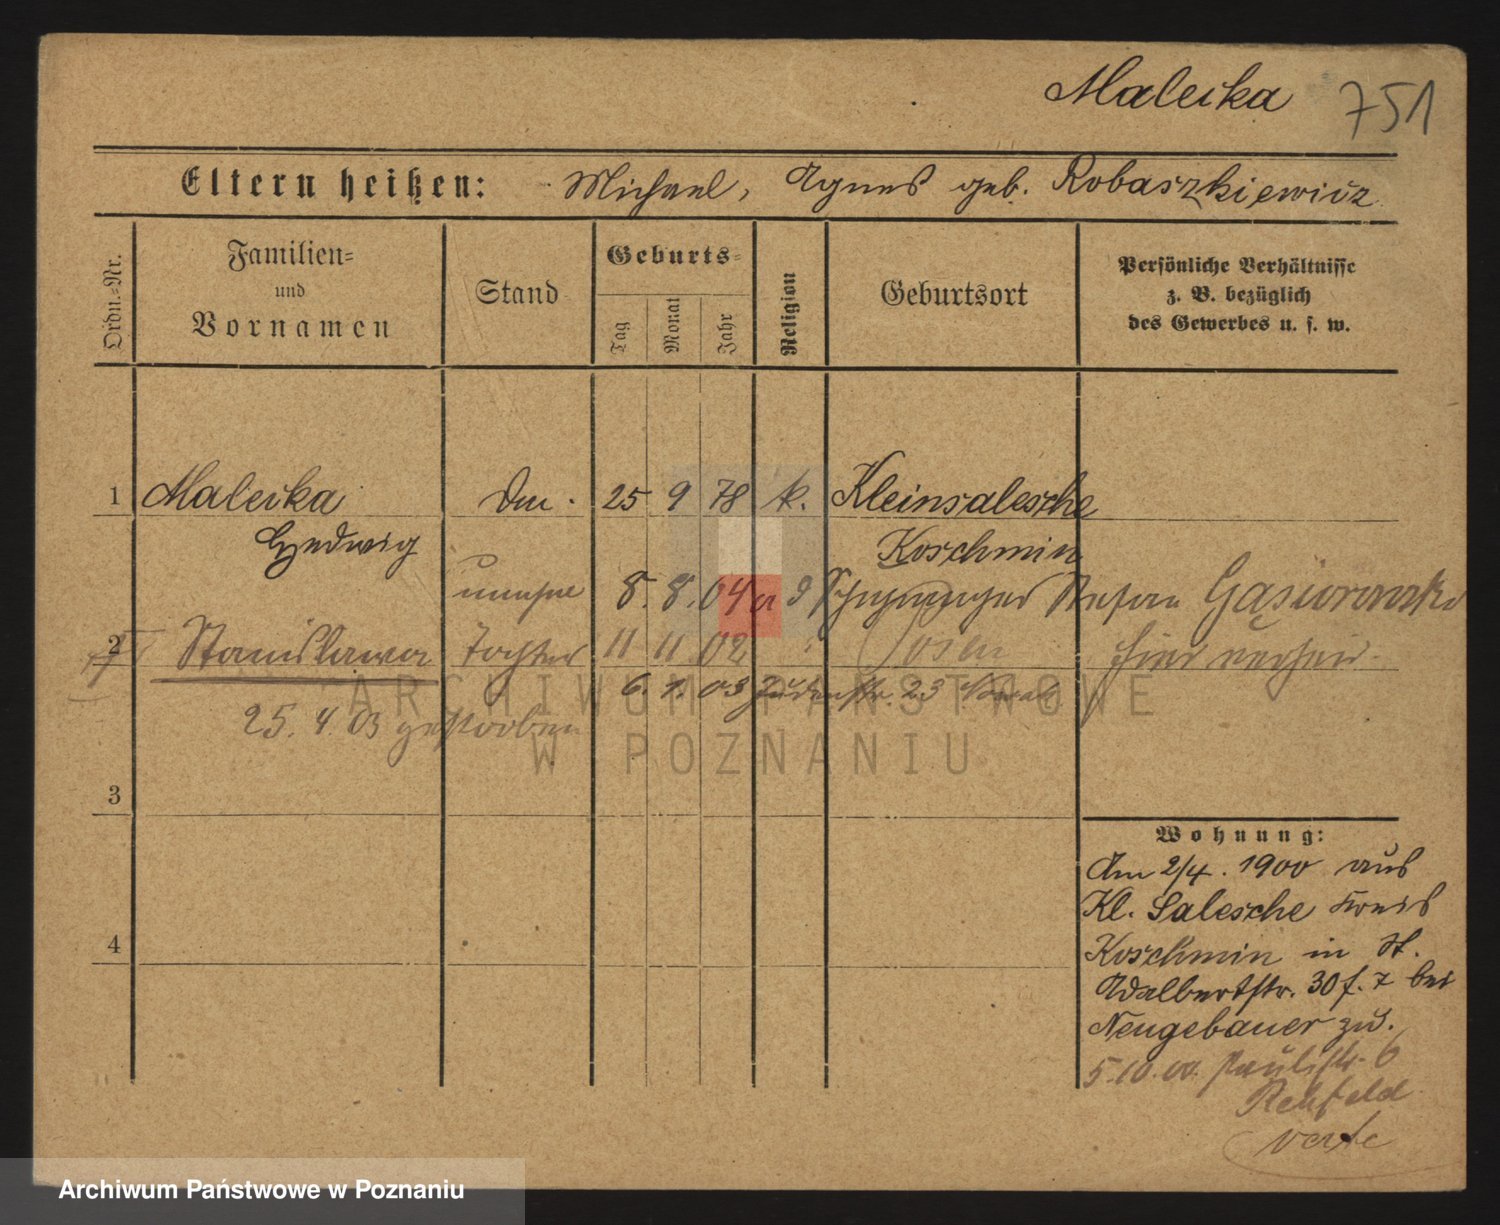 Maleika 751
Eltern heißen: Michael, Agnes geb. Robaszkiewicz
Ordn.=Nr.
Familien=
und
Vornamen
Stand
Geburts=
Tag
Monat
Jahr
Religion
Geburtsort
Persönliche Verhältnisse
z. B. bezüglich
des Gewerbes u. s. w.
1 Maleika 25 9 78 k. Kleinsalesche
Hedwig Koschmin
unehel 8. 8. 04 Stefan Gąsiorowski
2 Stanislawa Tochter 11 11 02 Posen hier
6. 1. 03 Judenstr. 23
25. 4. 03 gestorben
3
4
Wohnung:
Am 2/4. 1900 aus
Kl. Salesche Kreis
Koschmin in St.
Adalbertstr. 30 f. 7 bei
Neugebauer zu.
5.10.00. Paulistr. 6
Rehfeld
verte
ARCHIWUM PAŃSTWOWE
W POZNANIU
Archiwum Państwowe w Poznaniu